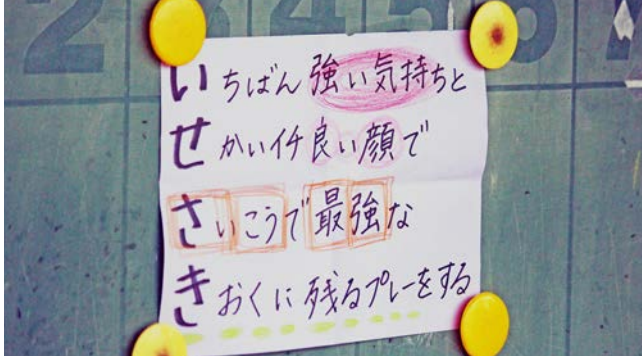 いちばん強い気持ちと
せかいイチ良い顔で
さいこうで最強な
きおくに残るプレーをする